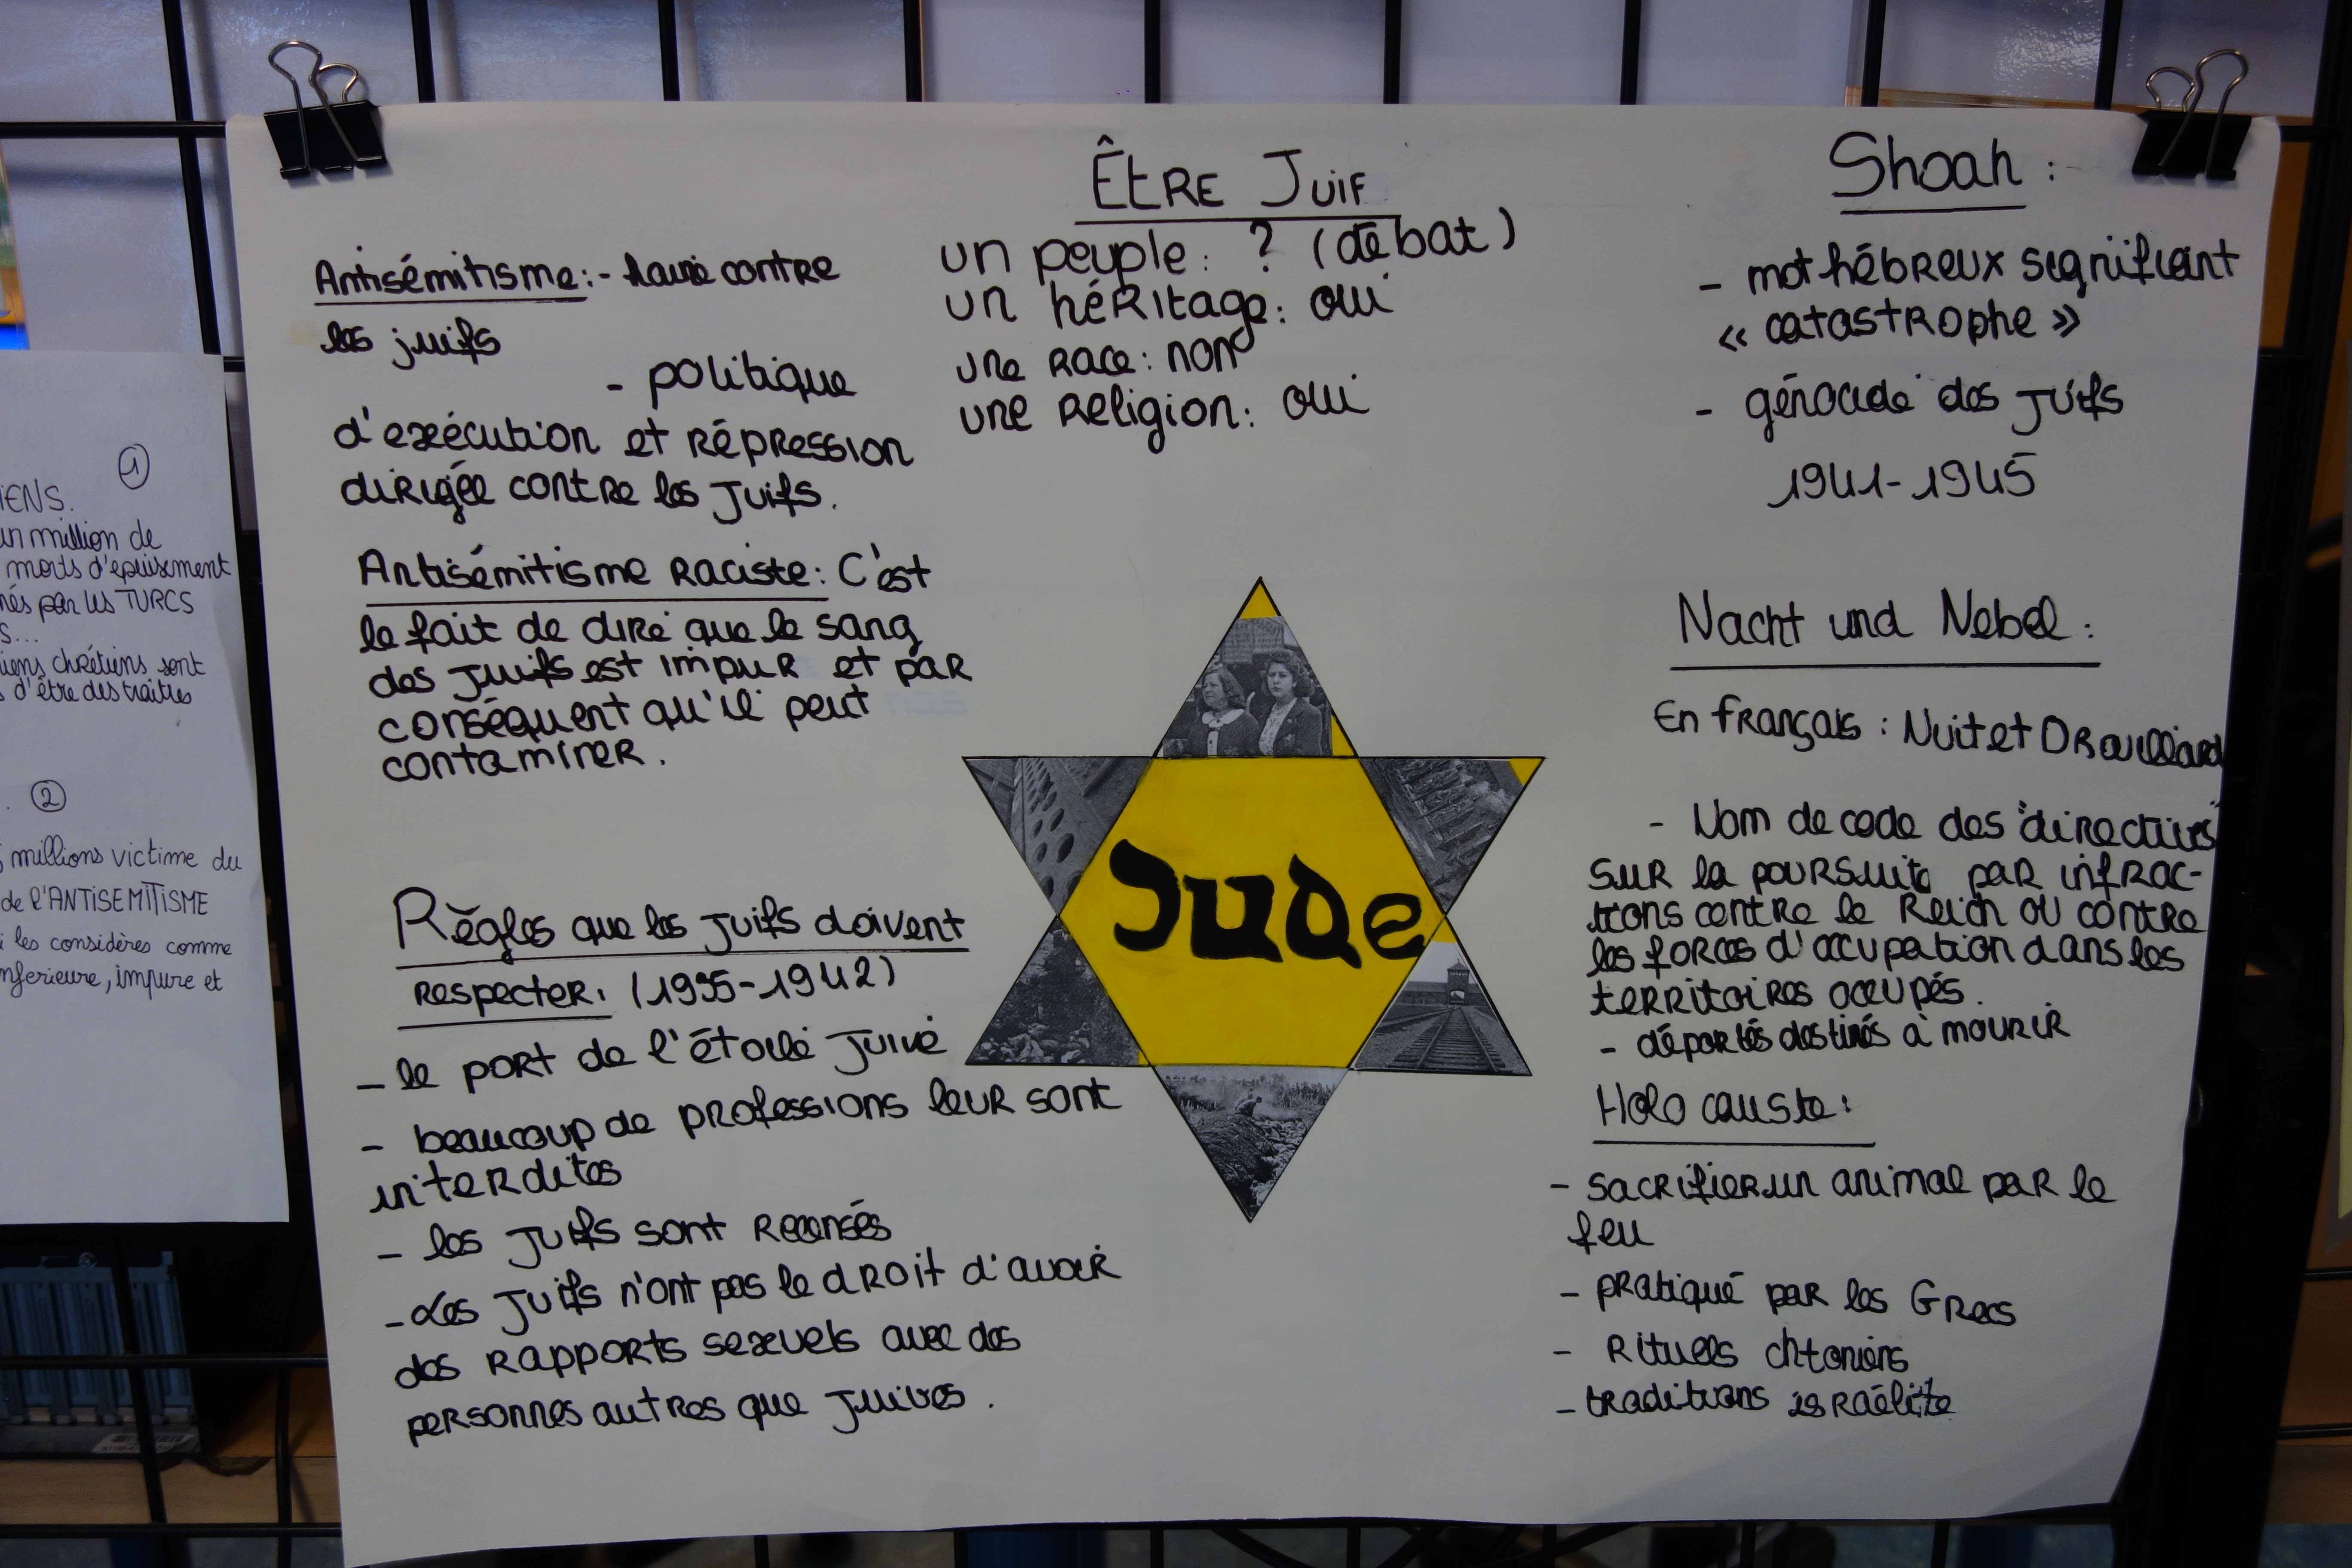 ÊtRE JUIF
un peuple : ? (débat)
un héritage : oui
une race : non
une religion : oui
Antisémitisme : - haine contre
les juifs
- politique
d'exécution et répression
dirigée contre les juifs.
Antisémitisme raciste : C'est
le fait de dire que le sang
des juifs est impur et par
conséquent qu'il peut
contaminer.
Règles que les juifs doivent
respecter : (1935-1942)
- le port de l'étoile juive
- beaucoup de professions leur sont
interdites
- les juifs sont recensés
- Les juifs n'ont pas le droit d'avoir
des rapports sexuels avec des
personnes autres que juives.
Jude
Shoah :
- mot hébreux signifiant
« catastrophe »
- génocide des juifs
1941-1945
Nacht und Nebel :
En français : Nuit et Brouillard
- Nom de code des "directives"
sur la poursuite par infrac-
tions contre le Reich ou contre
les forces d'occupation dans les
territoires occupés.
- déportés destinés à mourir
Holocauste :
- sacrifier un animal par le
feu
- pratiqué par les Grecs
- Rituels chtoniens
- traditions israélite
1
IENS.
un million de
morts d'épuisement
nés par les TURCS
s...
iens chrétiens sont
d'être des traîtres
2
millions victime du
de l'ANTISEMITISME
i les considères comme
nferieure, impure et